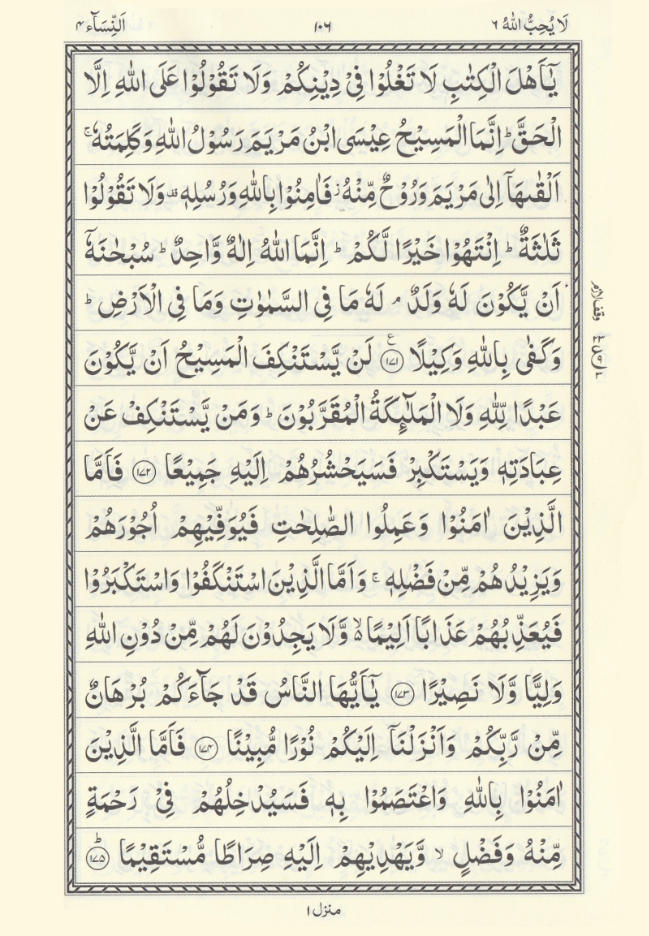 لَا يُحِبُّ اللهُ ٦
١٠٦
اَلنِّسَآء ٤
يٰٓاَهْلَ الْكِتٰبِ لَا تَغْلُوْا فِيْ دِيْنِكُمْ وَلَا تَقُوْلُوْا عَلَى اللهِ اِلَّا
الْحَقَّ ؕ اِنَّمَا الْمَسِيْحُ عِيْسَى ابْنُ مَرْيَمَ رَسُوْلُ اللهِ وَكَلِمَتُهٗ ۚ
اَلْقٰىهَاۤ اِلٰى مَرْيَمَ وَرُوْحٌ مِّنْهُ ؗ فَاٰمِنُوْا بِاللهِ وَرُسُلِهٖ ۟ وَلَا تَقُوْلُوْا
ثَلٰثَةٌ ؕ اِنْتَهُوْا خَيْرًا لَّكُمْ ؕ اِنَّمَا اللهُ اِلٰهٌ وَّاحِدٌ ؕ سُبْحٰنَهٗۤ
اَنْ يَّكُوْنَ لَهٗ وَلَدٌ ۘ لَهٗ مَا فِى السَّمٰوٰتِ وَمَا فِى الْاَرْضِ ؕ
وقف لازم
وَكَفٰى بِاللهِ وَكِيْلًا ﴿۱۷۱﴾ ع لَنْ يَّسْتَنْكِفَ الْمَسِيْحُ اَنْ يَّكُوْنَ
عَبْدًا لِّلّٰهِ وَلَا الْمَلٰٓئِكَةُ الْمُقَرَّبُوْنَ ؕ وَمَنْ يَّسْتَنْكِفْ عَنْ
عِبَادَتِهٖ وَيَسْتَكْبِرْ فَسَيَحْشُرُهُمْ اِلَيْهِ جَمِيْعًا ﴿۱۷۲﴾ فَاَمَّا
الَّذِيْنَ اٰمَنُوْا وَعَمِلُوا الصّٰلِحٰتِ فَيُوَفِّيْهِمْ اُجُوْرَهُمْ
وَيَزِيْدُهُمْ مِّنْ فَضْلِهٖ ۚ وَاَمَّا الَّذِيْنَ اسْتَنْكَفُوْا وَاسْتَكْبَرُوْا
فَيُعَذِّبُهُمْ عَذَابًا اَلِيْمًا ۙ۬ وَّلَا يَجِدُوْنَ لَهُمْ مِّنْ دُوْنِ اللهِ
وَلِيًّا وَّلَا نَصِيْرًا ﴿۱۷۳﴾ يٰٓاَيُّهَا النَّاسُ قَدْ جَآءَكُمْ بُرْهَانٌ
مِّنْ رَّبِّكُمْ وَاَنْزَلْنَاۤ اِلَيْكُمْ نُوْرًا مُّبِيْنًا ﴿۱۷۴﴾ فَاَمَّا الَّذِيْنَ
اٰمَنُوْا بِاللهِ وَاعْتَصَمُوْا بِهٖ فَسَيُدْخِلُهُمْ فِيْ رَحْمَةٍ
مِّنْهُ وَفَضْلٍ ۙ وَّيَهْدِيْهِمْ اِلَيْهِ صِرَاطًا مُّسْتَقِيْمًا ﴿۱۷۵﴾ؕ
منزل ۱